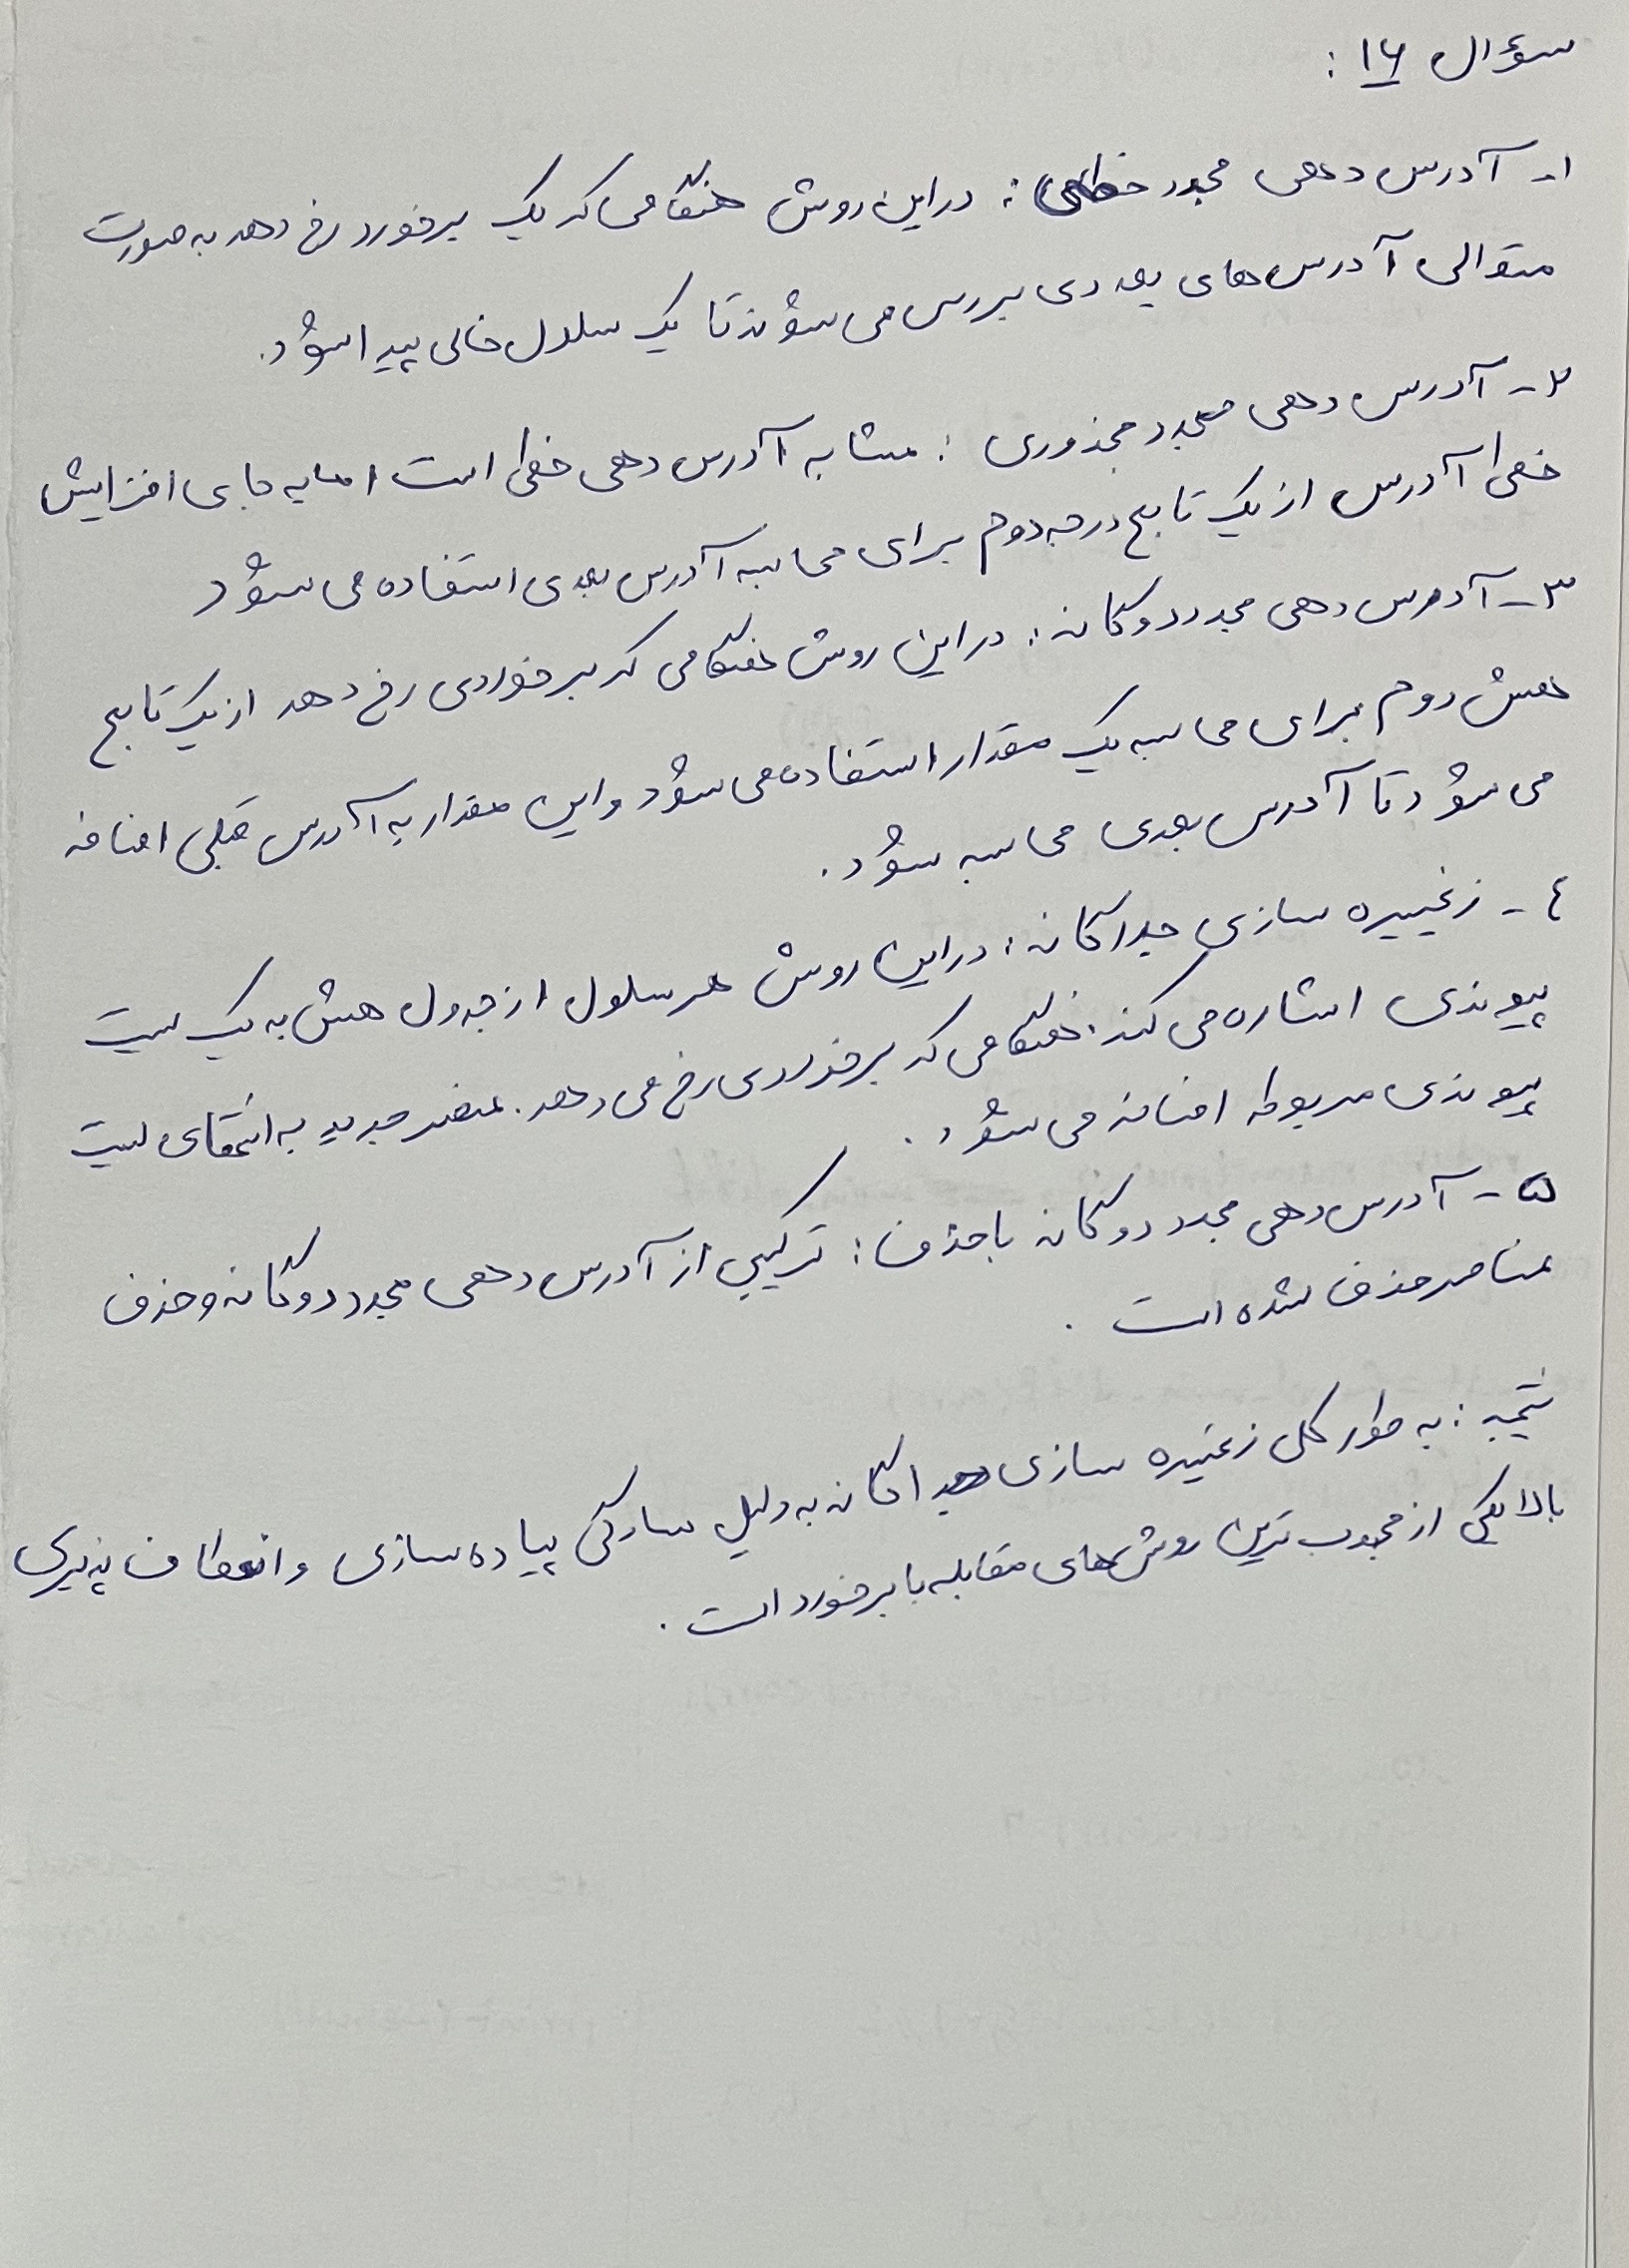 سؤال ۱۶ :
۱- آدرس دهی مجدد خطی : در این روش هنگامی که یک برخورد رخ دهد به صورت
متوالی آدرس های بعدی بررسی می شوند تا یک سلول خالی پیدا شود.
۲- آدرس دهی مجدد مجذوری : مشابه آدرس دهی خطی است اما به جای افزایش
خطی آدرس از یک تابع درجه دوم برای محاسبه آدرس بعدی استفاده می شود
۳- آدرس دهی مجدد دوگانه : در این روش هنگامی که برخوردی رخ دهد از یک تابع
هش دوم برای محاسبه یک مقدار استفاده می شود و این مقدار به آدرس قبلی اضافه
می شود تا آدرس بعدی محاسبه شود.
٤- زنجیره سازی جداگانه : در این روش هر سلول از جدول هش به یک لیست
پیوندی اشاره می کند. هنگامی که برخوردی رخ می دهد. عنصر جدید به انتهای لیست
پیوندی مربوطه اضافه می شود.
۵- آدرس دهی مجدد دوگانه با حذف : ترکیبی از آدرس دهی مجدد دوگانه و حذف
عناصر حذف شده است.
نتیجه : به طور کلی زنجیره سازی جداگانه به دلیل سادگی پیاده سازی و انعطاف پذیری
بالا یکی از محبوب ترین روش های مقابله با برخورد است.